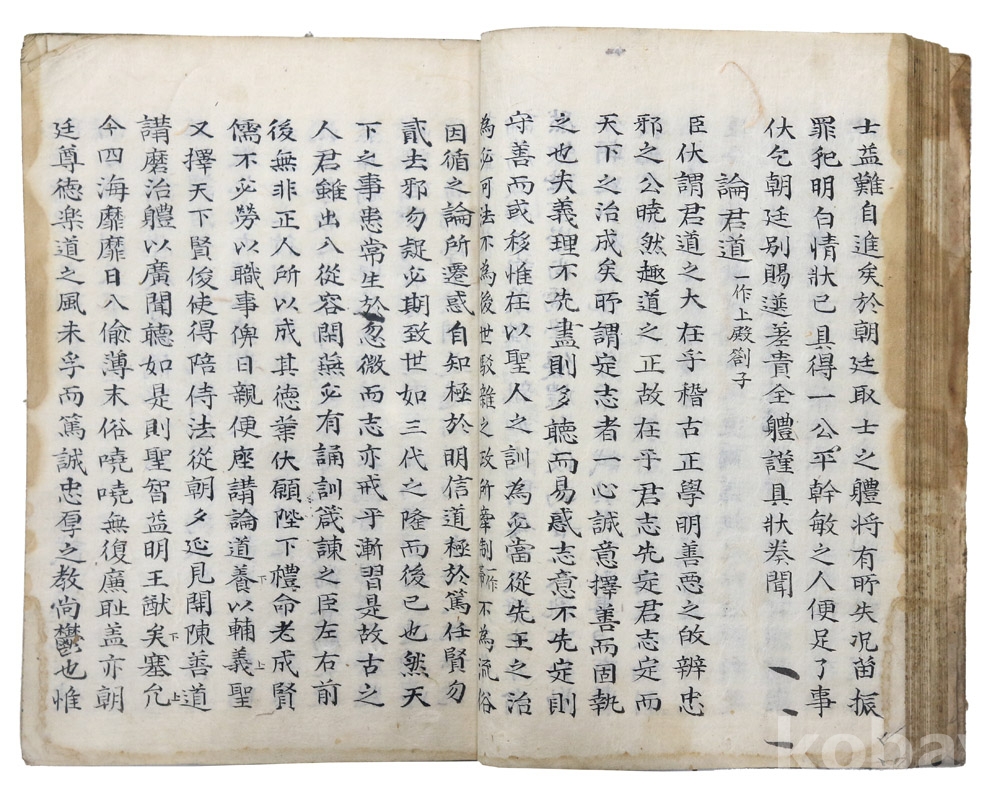 士益難自進矣於朝廷取士之軆将有所失况苗振
罪犯明白情狀已具得一公平幹敏之人便足了事
伏乞朝廷别賜選差貴全軆謹具狀奏聞
論君道 一作上殿劄子
臣伏謂君道之大在乎稽古正學明善惡之啟辨忠
邪之公曉然趣道之正故在乎君志先定君志定而
天下之治成矣所謂定志者一心誠意擇善而固執
之也夫義理不先盡則多聴而易惑志意不先定則
守善而或移惟在以聖人之訓為必當從先王之治
為必可法不為後世駁雜之政所牽制 一作 不為流俗
因循之論所遷惑自知極於明信道極於篤任賢勿
貳去邪勿疑必期致世如三代之隆而後已也然天
下之事患常生於忽微而志亦戒乎漸習是故古之
人君雖出入從容閒燕必有誦訓箴諌之臣左右前
後無非正人所以成其徳業伏願陛下禮命老成賢
儒不必勞以職事俾日親便座講論道養以輔義聖 下 上
又擇天下賢俊使得陪侍法從朝夕延見開陳善道
講磨治軆以廣聞聴如是則聖智益明王猷矣塞允 下 上
今四海靡靡日入偷薄末俗嘵嘵無復廉耻盖亦朝
廷尊徳楽道之風未孚而篤誠忠厚之教尚鬱也惟
koba